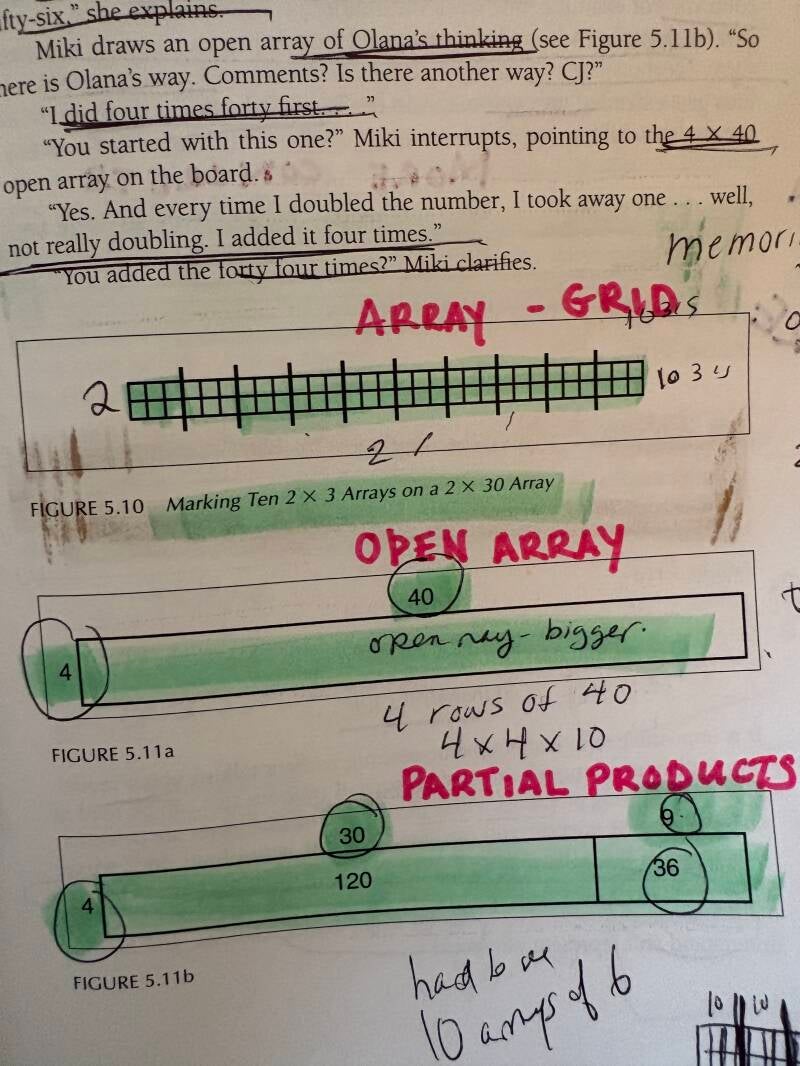 fty-six," she explains.
Miki draws an open array of Olana's thinking (see Figure 5.11b). "So
here is Olana's way. Comments? Is there another way? CJ?"
"I did four times forty first. . . ."
"You started with this one?" Miki interrupts, pointing to the 4 × 40
open array on the board.
"Yes. And every time I doubled the number, I took away one . . . well,
not really doubling. I added it four times."
"You added the forty four times?" Miki clarifies.
memori
ARRAY - GRID
10 3's
2
10 3's
2
FIGURE 5.10 Marking Ten 2 × 3 Arrays on a 2 × 30 Array
OPEN ARRAY
40
4
open ray - bigger.
4 rows of 40
4 x 4 x 10
FIGURE 5.11a
PARTIAL PRODUCTS
30
9
4
120
36
FIGURE 5.11b
had
10 arrays of 6
10 10